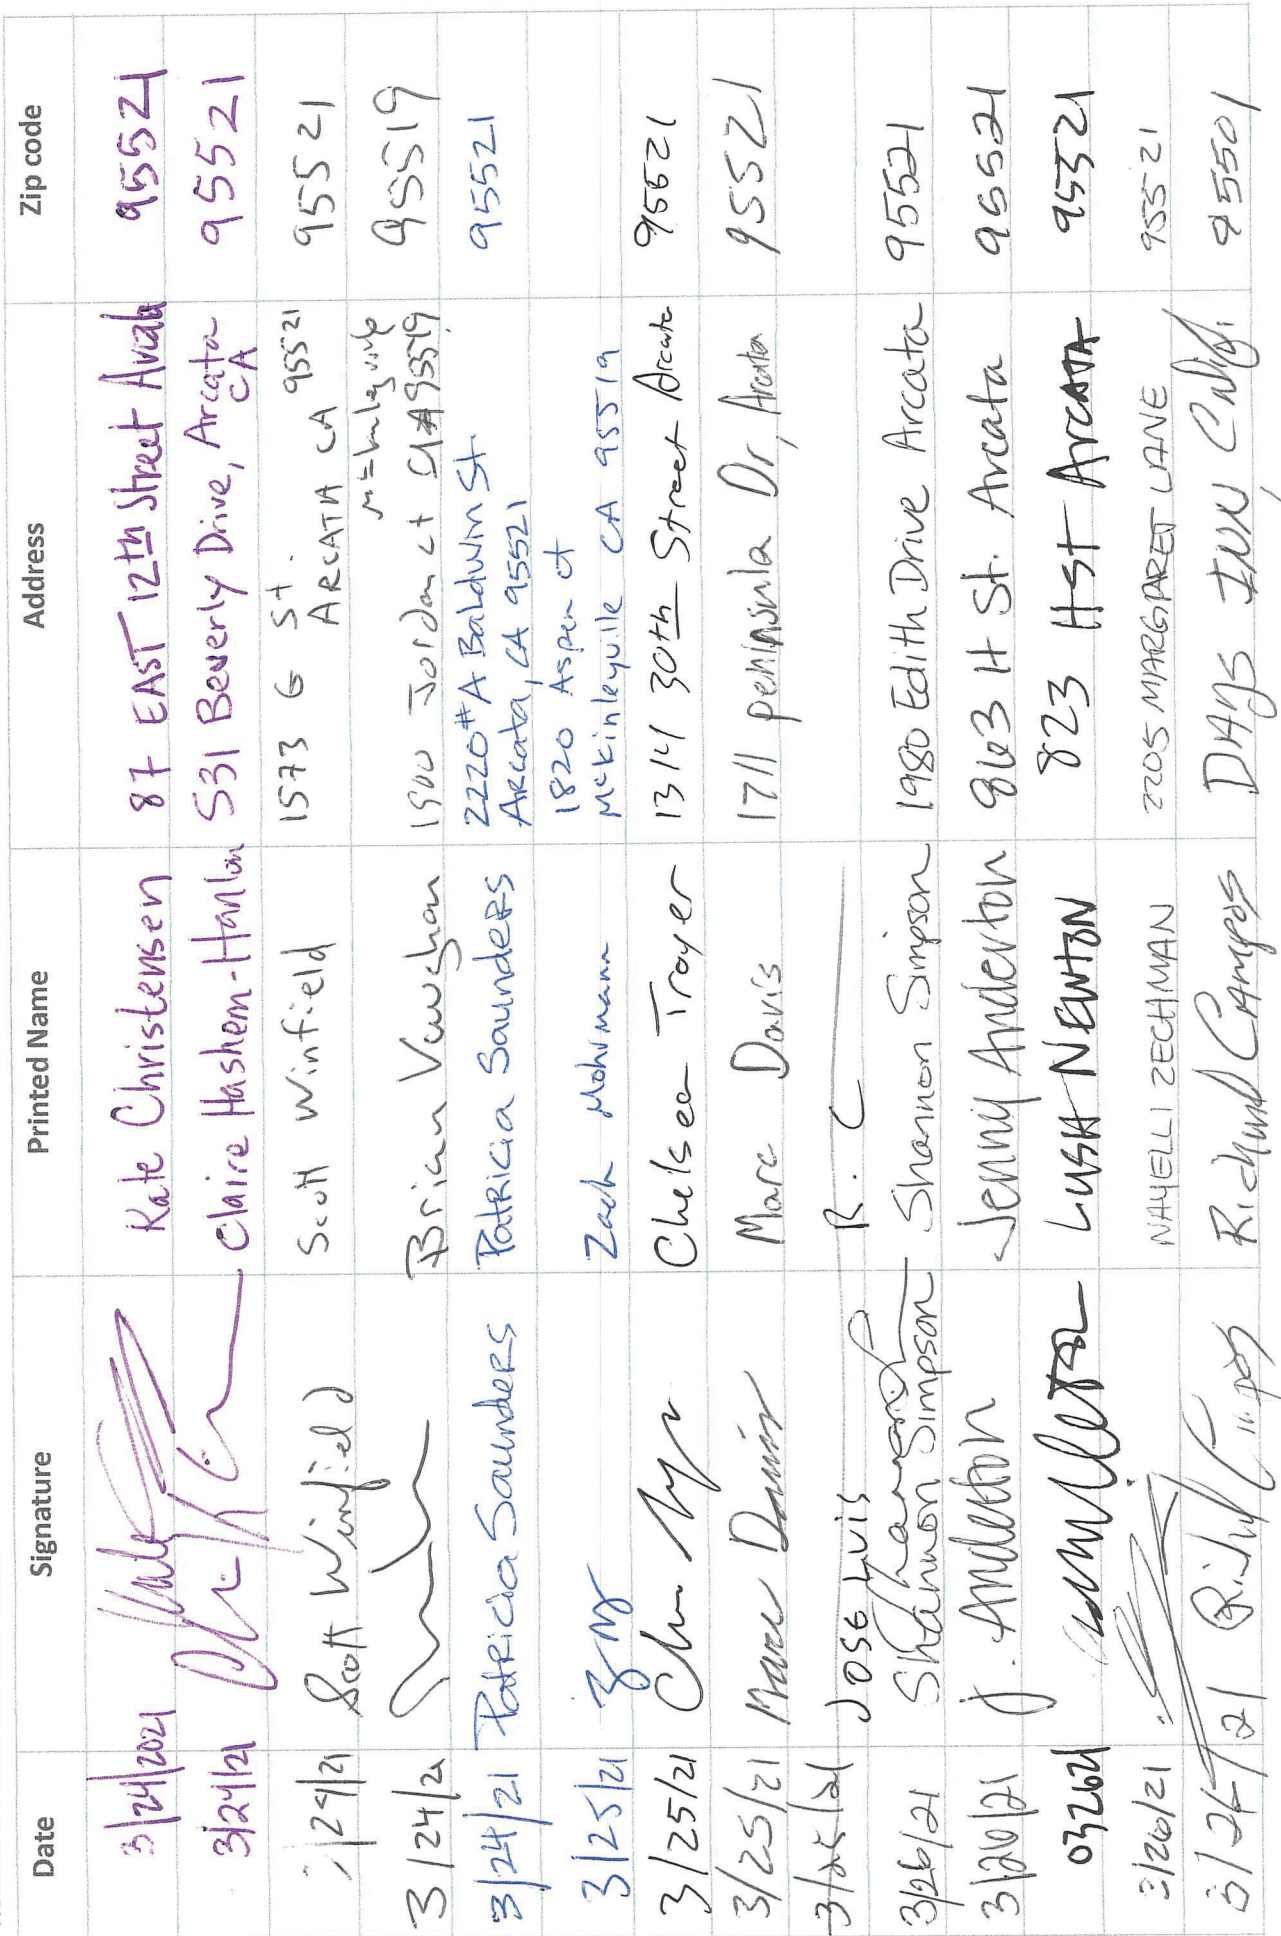 Date Signature Printed Name Address Zip code
3/24/2021 Kate Kate Christensen 87 EAST 12th Street Arcata 95521
3/24/21 Claire Hashem-Hanlon 531 Beverly Drive, Arcata 95521
CA
/24/21 Scott Winfield Scott Winfield 1573 G St. 95521
ARCATA CA 95521
3/24/21 Brian Vaughan Jordan ct CA 95519 95519
3/24/21 Patricia Saunders Patricia Saunders 2220 #A Baldwin St. 95521
Arcata, CA 95521
3/25/21 Zach Mohrmann 1820 Aspen ct
McKinleyville CA 95519
3/25/21 Chelsea Troyer 1314 30th Street Arcata 95521
3/25/21 Marc Davis Marc Davis 1711 peninsula Dr, Arcata 95521
3/25/21 Jose Luis R. C
3/26/21 Shannon Simpson Shannon Simpson 1980 Edith Drive Arcata 95521
3/26/21 j. Anderton Jenny Anderton 863 H St. Arcata 95521
032621 LUSH NEWTON 823 H ST ARCATA 95521
3/26/21 NAYELLI ZECHMAN 2205 MARGARET LANE 95521
3/26/21 Richard Campos Richard Campos DAys INN 95501